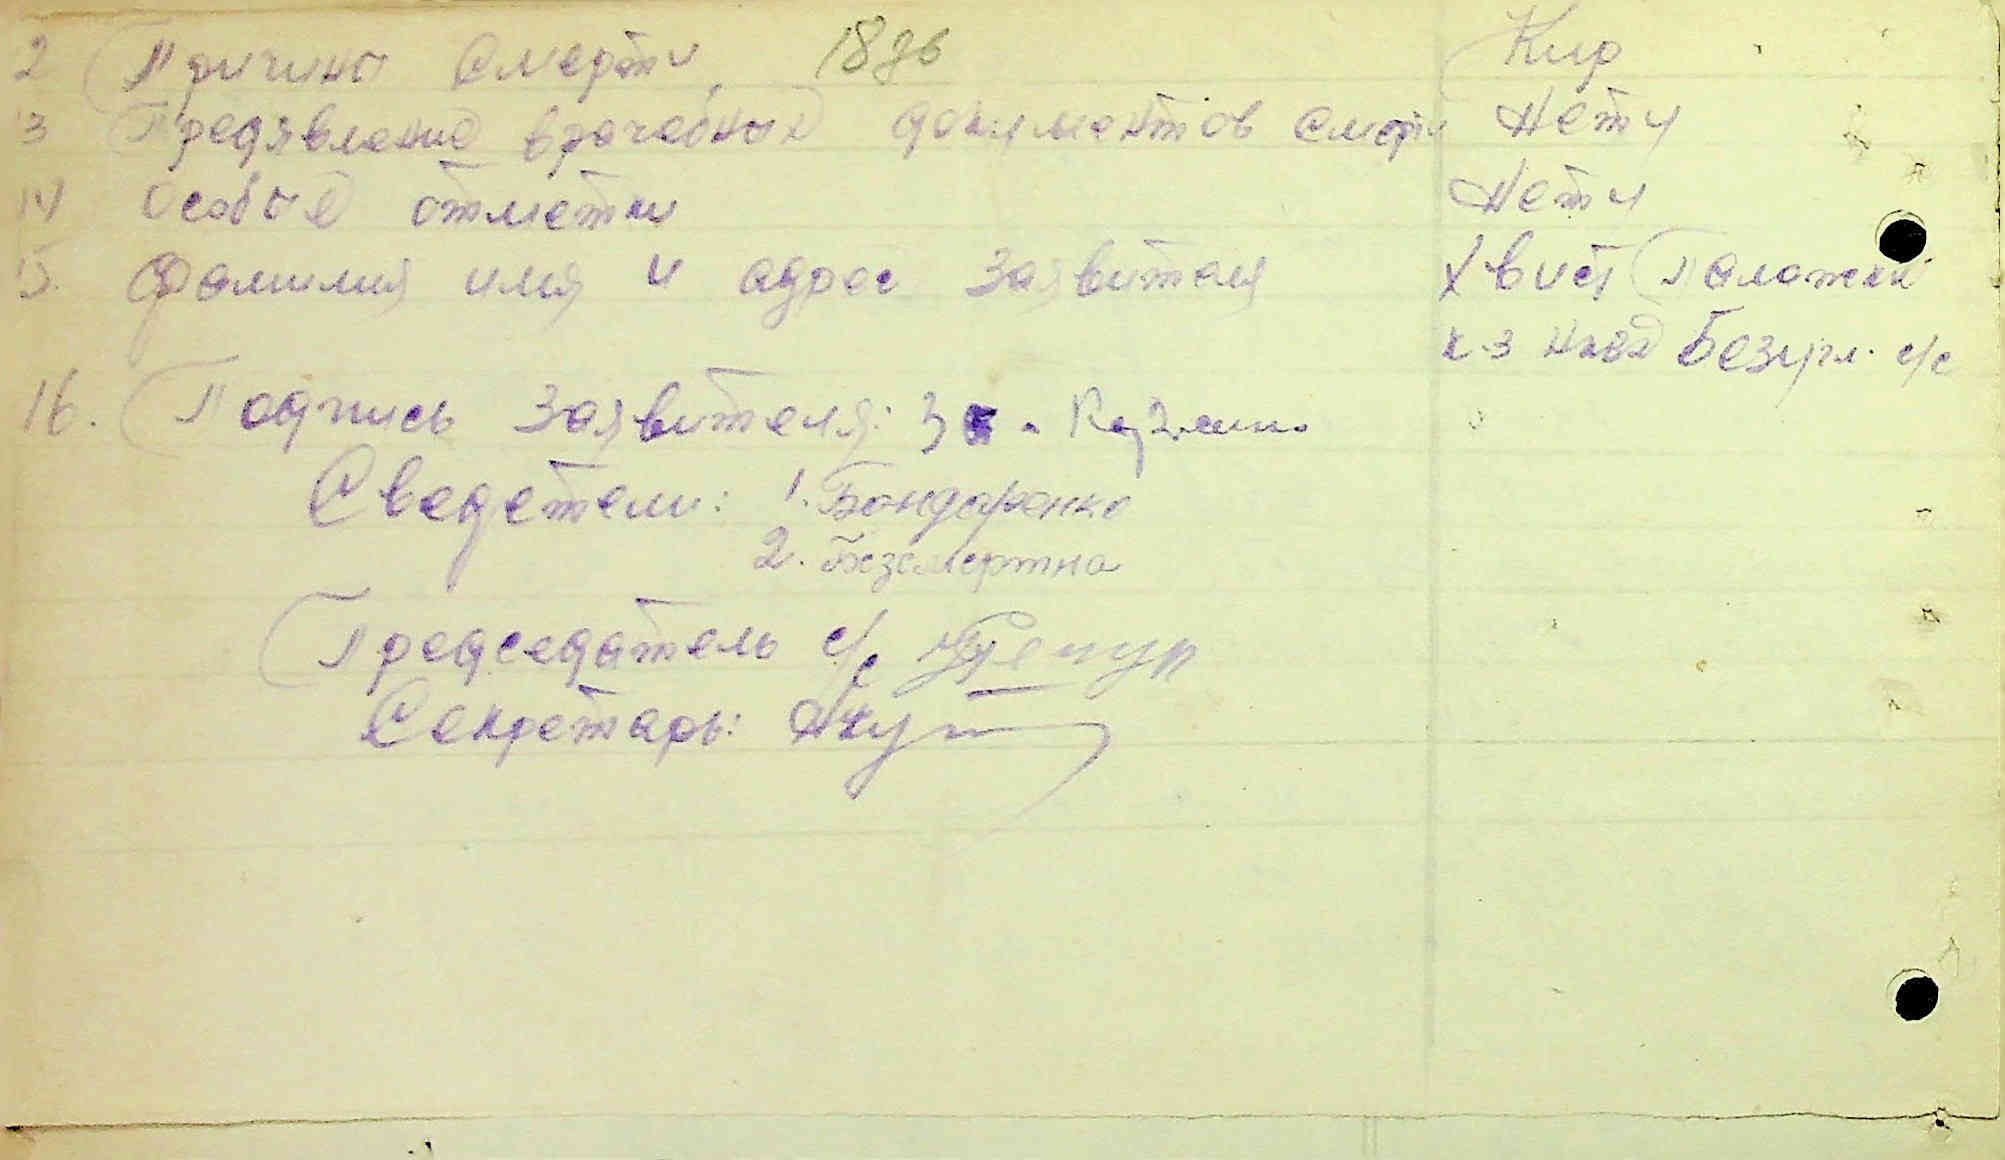 2 Причина смерти 18дв Кир
13 Предявление врачебных документов смерти Нету
14 Особые отметки Нету
15. Фамилия имя и адрес заявителя Хвист Палажка
к-з Безугл. с/с
16. Подпись заявителя: За
Сведетели: 1. Бондаренко
2. Безсмертна
Председатель с/с
Секретарь: